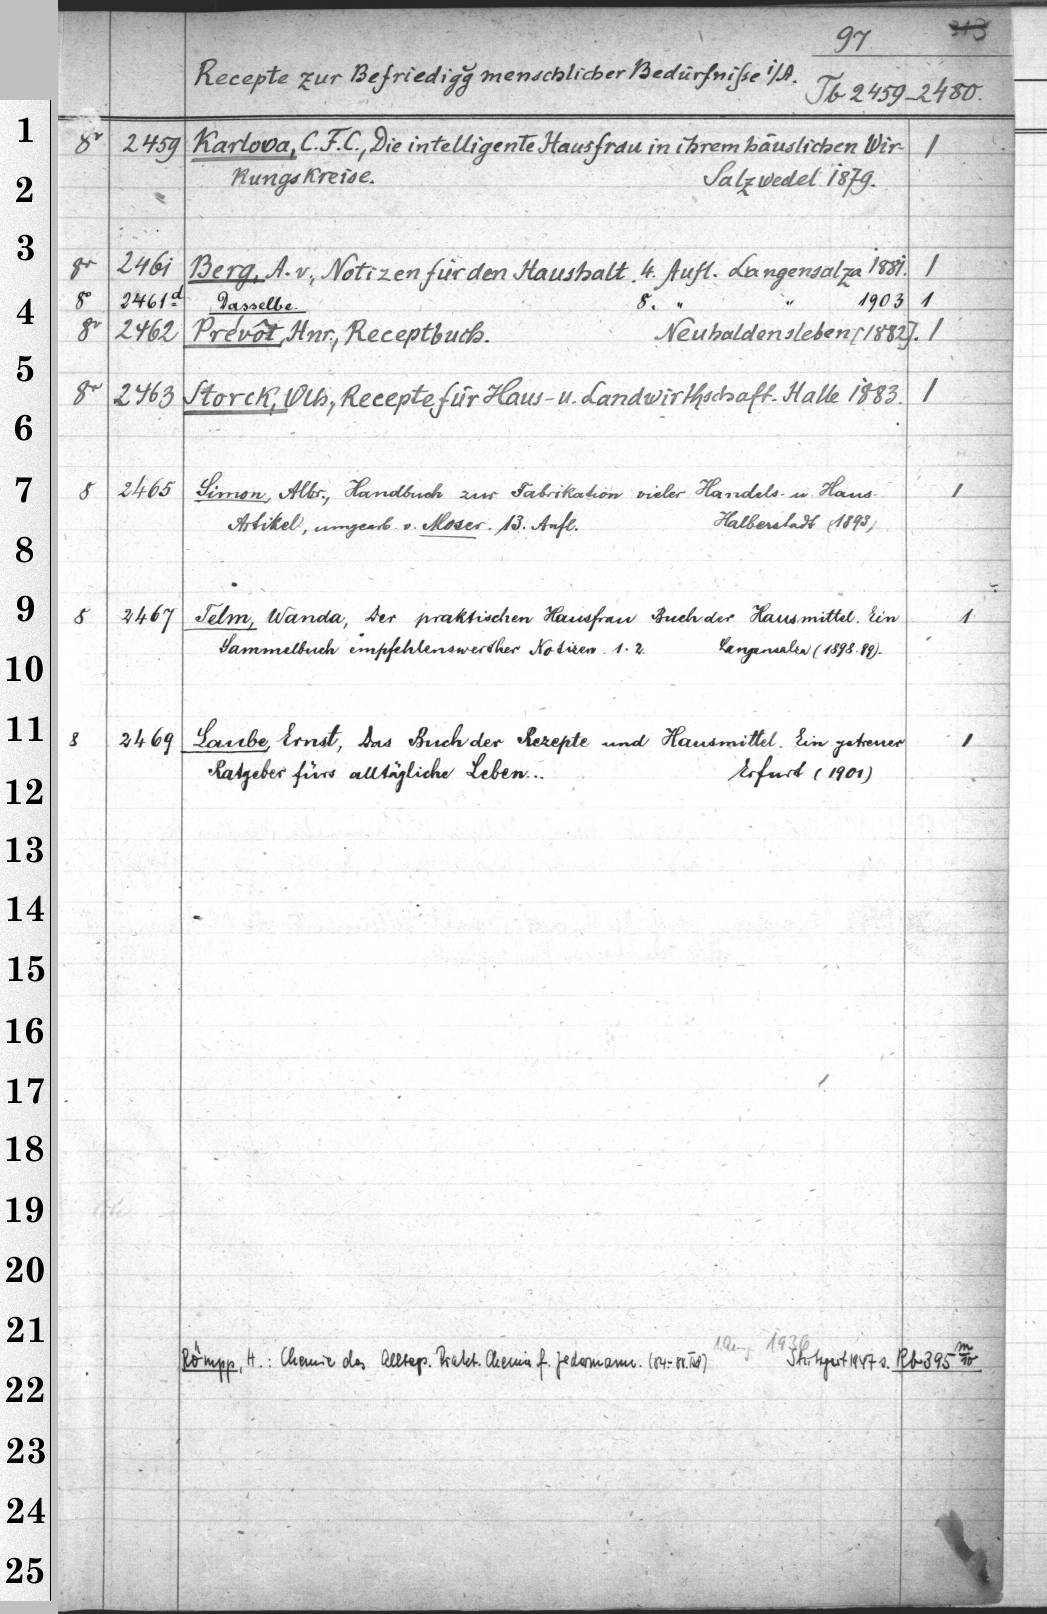 97 313
Recepte zur Befriedigg menschlicher Bedürfniße i/A. Tb 2459-2480.
1
8° 2459 Karlova, C.F.C., Die intelligente Hausfrau in ihrem häuslichen Wir- 1
2
kungskreise. Salzwedel 1879.
3
8° 2461 Berg, A. v., Notizen für den Haushalt. 4. Aufl. Langensalza 1881. 1
4
8° 2461d Dasselbe. 8. " " 1903 1
8° 2462 Prévôt, Hnr., Receptbuch. Neuhaldensleben [1882]. 1
5
8° 2463 Storck, Wlh., Recepte für Haus- u. Landwirthschaft. Halle 1883. 1
6
7
8 2465 Simon, Albr., Handbuch zur Fabrikation vieler Handels- u. Haus- 1
Artikel, umgearb. v. Moser. 13. Aufl. Halberstadt (1893)
8
9
8 2467 Telm, Wanda, Der praktischen Hausfrau Buch der Hausmittel. Ein 1
Sammelbuch empfehlenswerther Notizen. 1. 2. Langensalza (1898-99).
10
11
8 2469 Laube, Ernst, Das Buch der Rezepte und Hausmittel. Ein getreuer 1
Ratgeber fürs alltägliche Leben... Erfurt (1901)
12
13
14
15
16
17
18
19
20
21
1936
Römpp, H.: Chemie des Alltags. Prakt. Chemie f. Jedermann. Stuttgart 1947 s. Rb 395 m/10
22
23
24
25